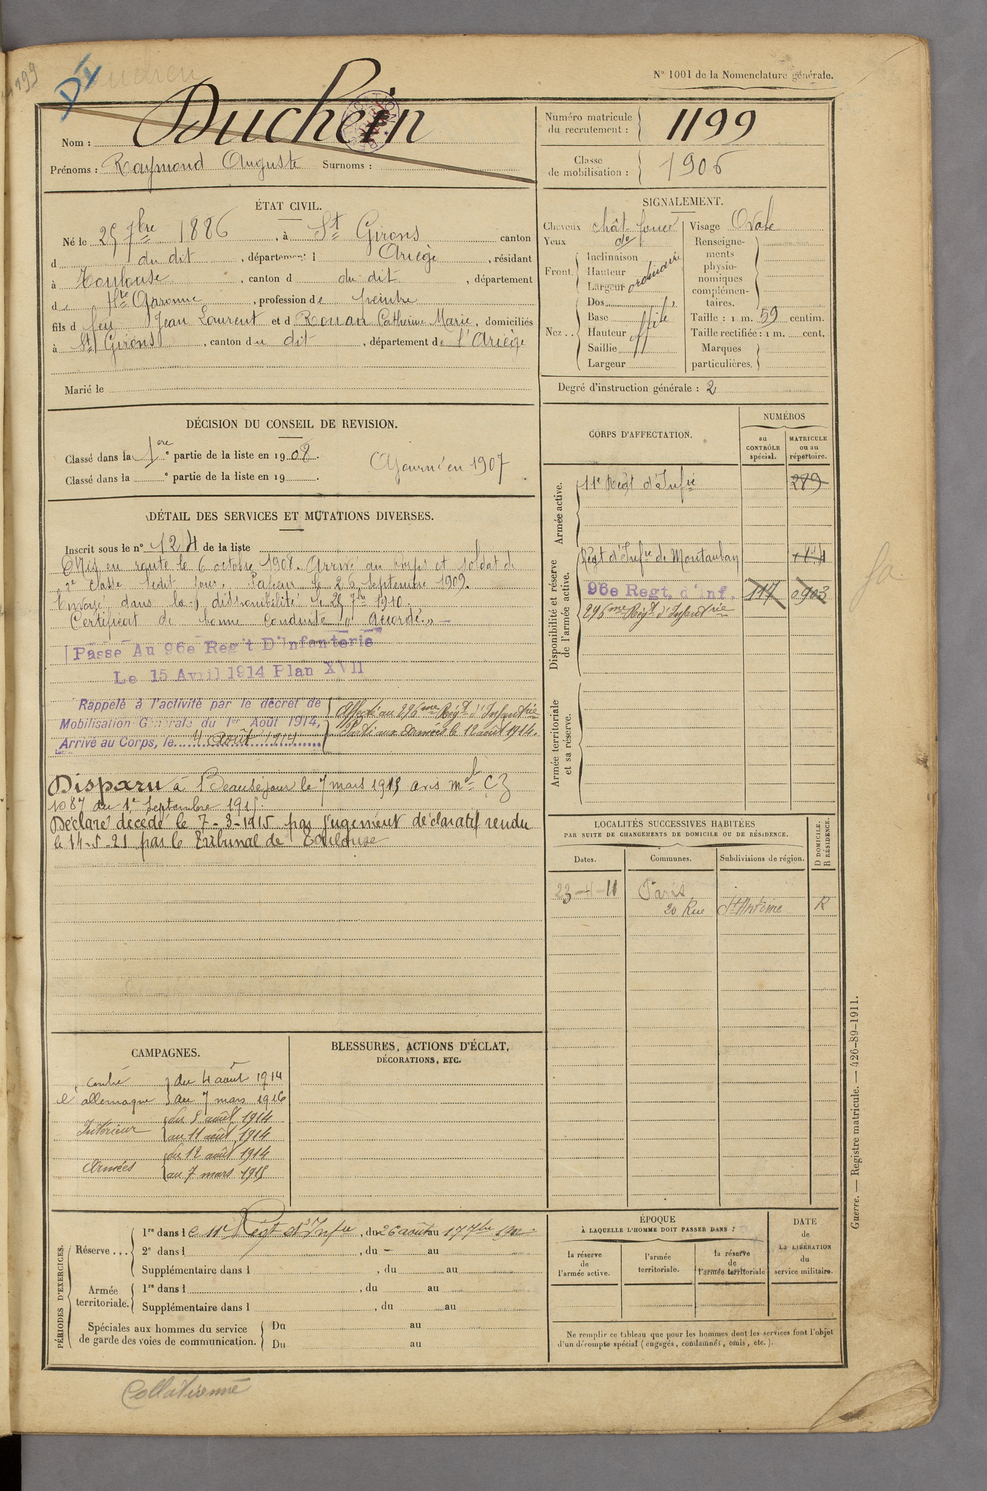 N° 1001 de la Nomenclature générale.
Nom : Duchein
Prénoms : Raymond Auguste Surnoms :
Numéro matricule du recrutement : 1199
Classe de mobilisation : 1906
ÉTAT CIVIL.
Né le 25 7bre 1886, à St Girons canton
d du dit, département d Ariège, résidant
à Toulouse, canton d du dit, département
d Hte Garonne, profession de peintre
fils d feu Jean Laurent et d Rouan Catherine Marie, domiciliés
à St Girons, canton du dit, département de l'Ariège
Marié le
SIGNALEMENT.
Cheveux chât foncé
Yeux
Front
Inclinaison
Hauteur
Largeur
ordinaire
Nez
Dos
Base
Hauteur
Saillie
Largeur
Visage Ovale
Renseignements physionomiques complémentaires.
Taille : 1 m. 59 centim.
Taille rectifiée : 1 m. cent.
Marques particulières.
Degré d'instruction générale : 2
DÉCISION DU CONSEIL DE REVISION.
Classé dans la 1ere partie de la liste en 1908.
Classé dans la e partie de la liste en 19
Ajourné en 1907
CORPS D'AFFECTATION.
NUMÉROS
au CONTRÔLE spécial.
MATRICULE ou au répertoire.
Armée active.
11e Régt d'Infie
289
Disponibilité et réserve de l'armée active.
Régt d'Infie de Montauban
96e Regt. d'Inf. 117 0903
296me Régt d'Infanterie
Armée territoriale et sa réserve.
DÉTAIL DES SERVICES ET MUTATIONS DIVERSES.
Inscrit sous le n° 124 de la liste
Mis en route le 6 octobre 1908. Arrivé au corps et soldat de
2e classe ledit jour. le 26 Septembre 1909.
Envoyé dans la disponibilité le 25 7bre 1910.
Certificat de bonne conduite "accordé". —
Passe Au 96e Reg't D'Infanterie
Le 15 Avril 1914 Plan XVII
Rappelé à l'activité par le décret de
Mobilisation Générale du 1er Août 1914,
Arrivé au Corps, le 4 août 1914
Affecté au 296me Régt d'Infanterie
Parti aux Armées le 12 août 1914.
Disparu à Beauséjour le 7 mars 1915 avis mel CZ
1087 du 1er Septembre 1915.
Déclaré décédé le 7-3-1915 par jugement déclaratif rendu
le 14-5-21 par le Tribunal de Toulouse
LOCALITÉS SUCCESSIVES HABITÉES
PAR SUITE DE CHANGEMENTS DE DOMICILE OU DE RÉSIDENCE.
Dates.
Communes.
Subdivisions de région.
D DOMICILE. R RÉSIDENCE.
Paris
20 Rue St Antoine R
CAMPAGNES.
contre l'allemagne
du 4 août 1914
au 7 mars 1916
Intérieur
du 5 août 1914
au 11 août 1914
Armées
du 12 août 1914
au 7 mars 1915
BLESSURES, ACTIONS D'ÉCLAT,
DÉCORATIONS, ETC.
PÉRIODES D'EXERCICES.
Réserve
1re dans le 11e Régt d'Infie, du 26 août au 17 7bre
2e dans l , du au
Supplémentaire dans l , du au
Armée territoriale.
1re dans l , du au
Supplémentaire dans l , du au
Spéciales aux hommes du service de garde des voies de communication.
Du au
Du au
ÉPOQUE
À LAQUELLE L'HOMME DOIT PASSER DANS :
la réserve de l'armée active.
l'armée territoriale.
la réserve de l'armée territoriale
DATE de LA LIBÉRATION du service militaire.
Ne remplir ce tableau que pour les hommes dont les services font l'objet
d'un décompte spécial (engagés, condamnés, omis, etc.).
Guerre. — Registre matricule. — 426-89-1911.
Collationné